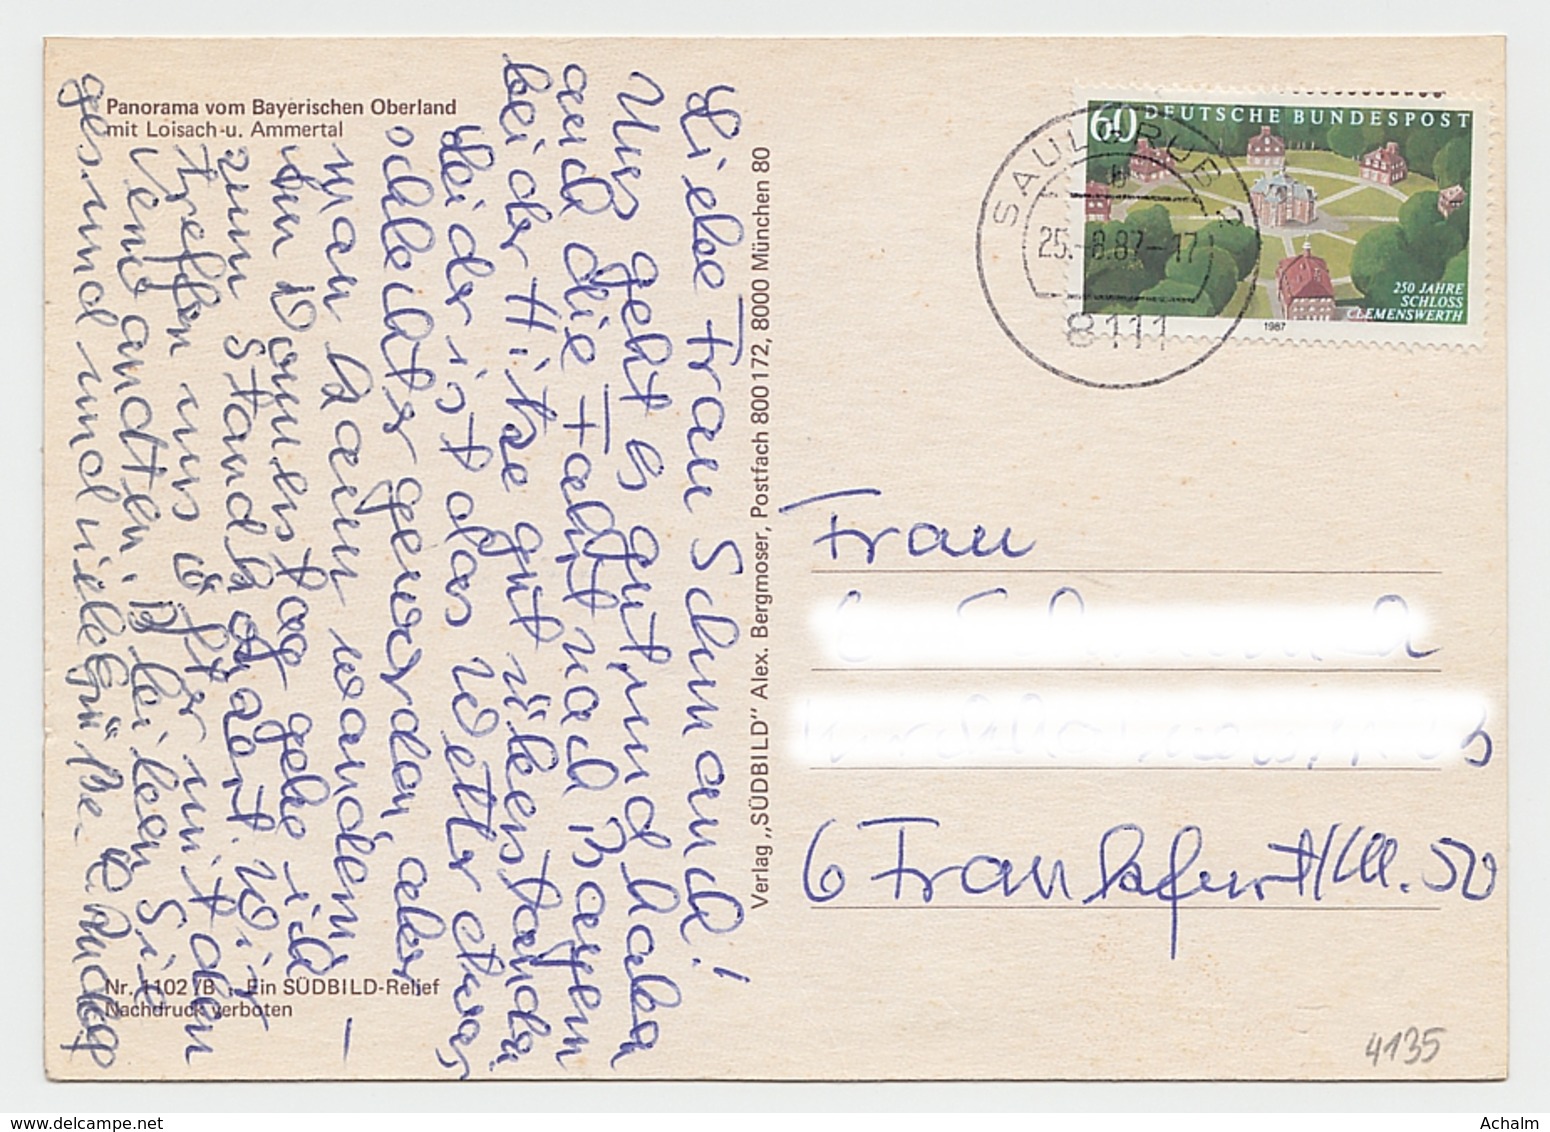 Panorama vom Bayerischen Oberland
mit Loisach-u. Ammertal
Liebe Frau Schmand!
Uns geht es gut, und haben
auch die Fahrt nach Bayern
bei der Hitze gut überstanden
Leider ist das Wetter etwas
schlechter geworden, aber
man kann wandern. –
Am Donnerstag gehe ich
zum Standkonzert. Wir
treffen uns öfter mit den
Verwandten. Bleiben Sie
gesund und viele Grüße
Nr. 1102/B Ein SÜDBILD-Relief
Nachdruck verboten
Verlag „SÜDBILD" Alex. Bergmoser, Postfach 800172, 8000 München 80
60 DEUTSCHE BUNDESPOST
250 JAHRE
SCHLOSS
CLEMENSWERTH
1987
SAULGRUB
25.-8.87-17
8111
Frau
6 Frankfurt/M. 50
4135
Achalm